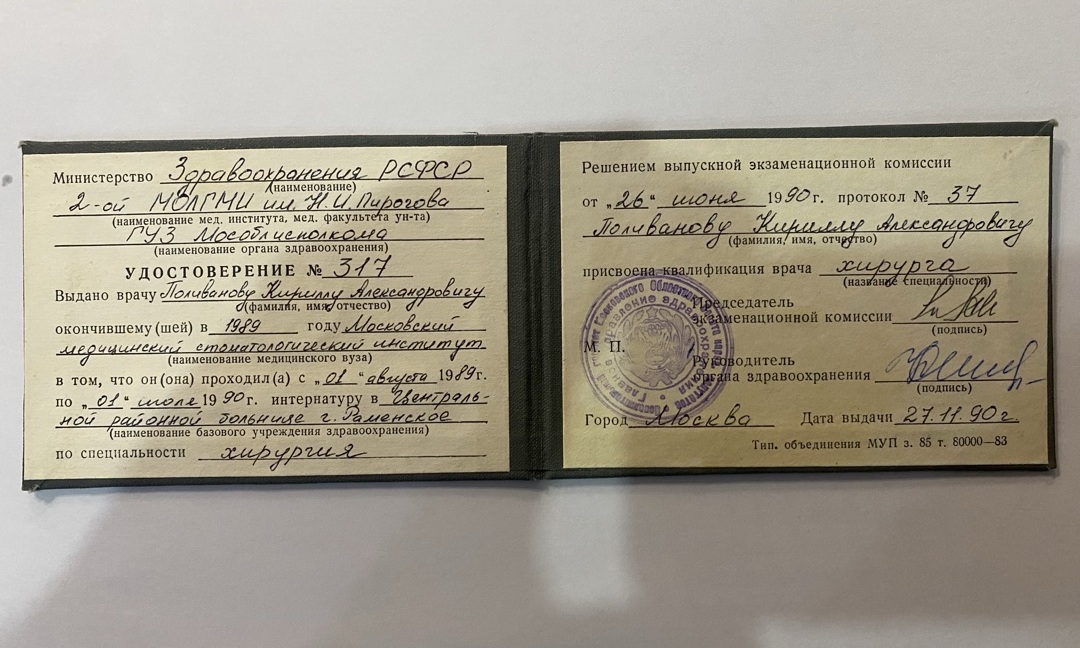 Министерство Здравоохранения РСФСР
(наименование)
2-ой МОЛГМИ им. Н.И. Пирогова
(наименование мед. института, мед. факультета ун-та)
ГУЗ Мособлисполкома
(наименование органа здравоохранения)
УДОСТОВЕРЕНИЕ № 317
Выдано врачу Поливанову Кириллу Александровичу
(фамилия, имя, отчество)
окончившему (шей) в 1989 году Московский
медицинский стоматологический институт
(наименование медицинского вуза)
в том, что он (она) проходил (а) с „01“ августа 1989 г.
по „01“ июля 1990 г. интернатуру в Централь-
ной районной больнице г. Раменское
(наименование базового учреждения здравоохранения)
по специальности хирургия
Решением выпускной экзаменационной комиссии
от „26“ июня 1990 г. протокол № 37
Поливанову Кириллу Александровичу
(фамилия, имя, отчество)
присвоена квалификация врача хирурга
(название специальности)
Председатель
экзаменационной комиссии
(подпись)
М. П.
Руководитель
органа здравоохранения
(подпись)
Город Москва Дата выдачи 27.11.90г.
Тип. объединения МУП з. 85 т. 80000—83